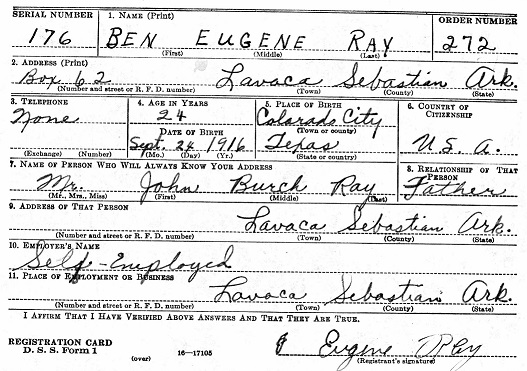 SERIAL NUMBER 1. NAME (Print) ORDER NUMBER
176 BEN EUGENE RAY 272
(First) (Middle) (Last)
2. ADDRESS (Print)
Box 62 Lavaca Sebastian Ark.
(Number and street or R. F. D. number) (Town) (County) (State)
3. TELEPHONE 4. AGE IN YEARS 5. PLACE OF BIRTH 6. COUNTRY OF CITIZENSHIP
None 24 Colorado City
DATE OF BIRTH (Town or county)
Sept. 24 1916 Texas U. S. A.
(Exchange) (Number) (Mo.) (Day) (Yr.) (State or country)
7. NAME OF PERSON WHO WILL ALWAYS KNOW YOUR ADDRESS 8. RELATIONSHIP OF THAT PERSON
Mr. John Burch Ray Father
(Mr., Mrs., Miss) (First) (Middle) (Last)
9. ADDRESS OF THAT PERSON
Lavaca Sebastian Ark.
(Number and street or R. F. D. number) (Town) (County) (State)
10. EMPLOYER'S NAME
Self-Employed
11. PLACE OF EMPLOYMENT OR BUSINESS
Lavaca Sebastian Ark.
(Number and street or R. F. D. number) (Town) (County) (State)
I AFFIRM THAT I HAVE VERIFIED ABOVE ANSWERS AND THAT THEY ARE TRUE.
REGISTRATION CARD
D. S. S. Form 1 Eugene Ray
(over) 16—17105 (Registrant's signature)